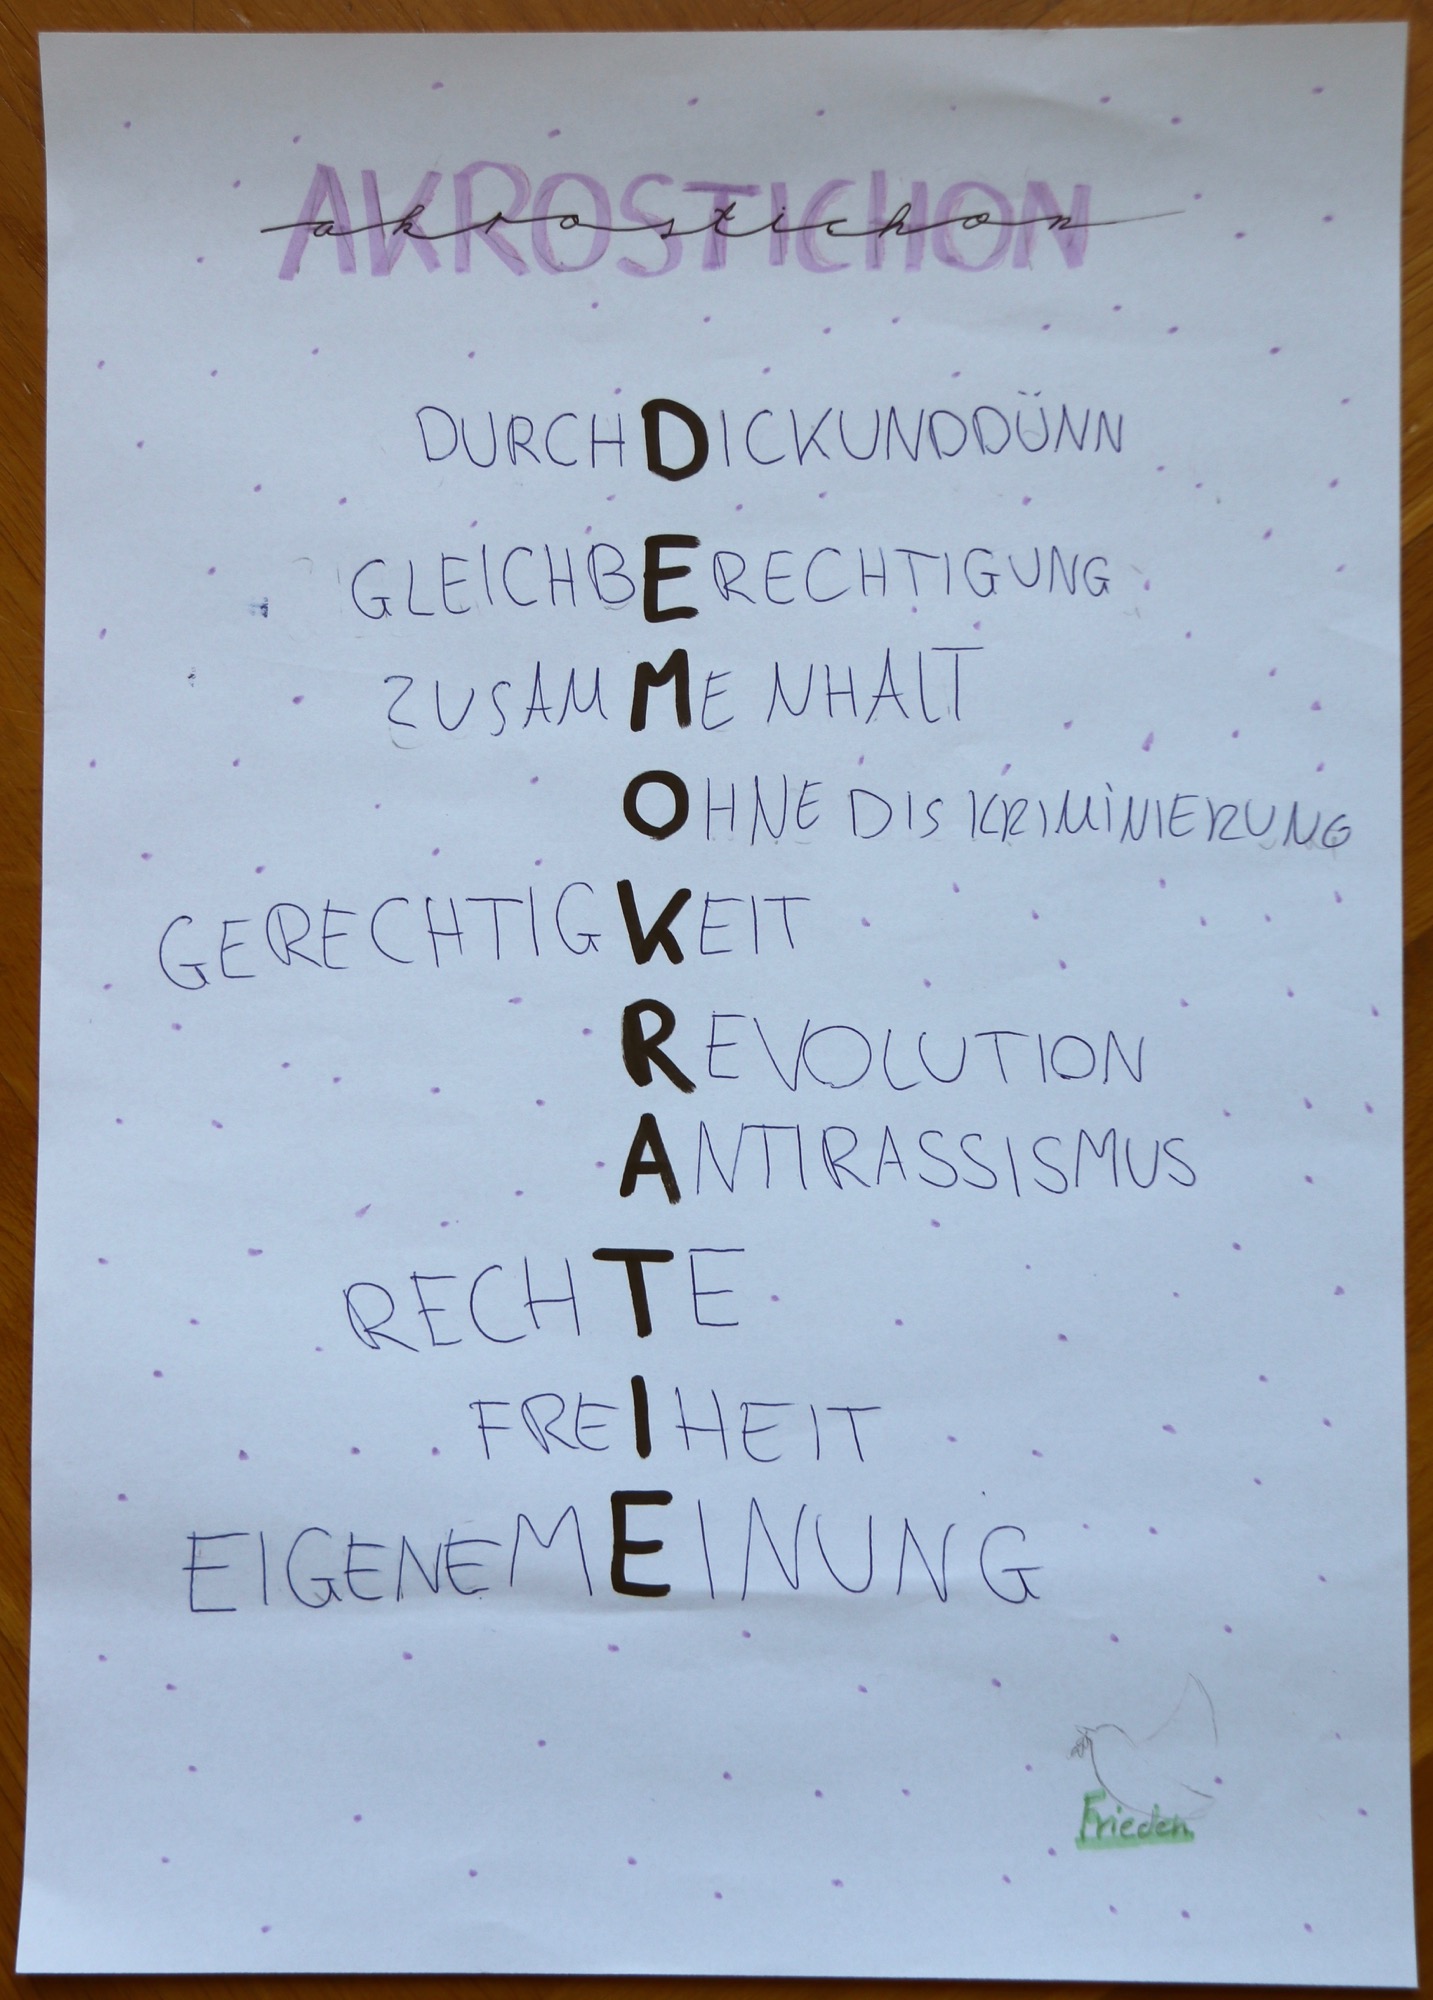 AKROSTICHON
akrostichon
DURCHDICKUNDDÜNN
GLEICHBERECHTIGUNG
ZUSAMMENHALT
OHNE DISKRIMINIERUNG
GERECHTIGKEIT
REVOLUTION
ANTIRASSISMUS
RECHTE
FREIHEIT
EIGENEMEINUNG
Frieden